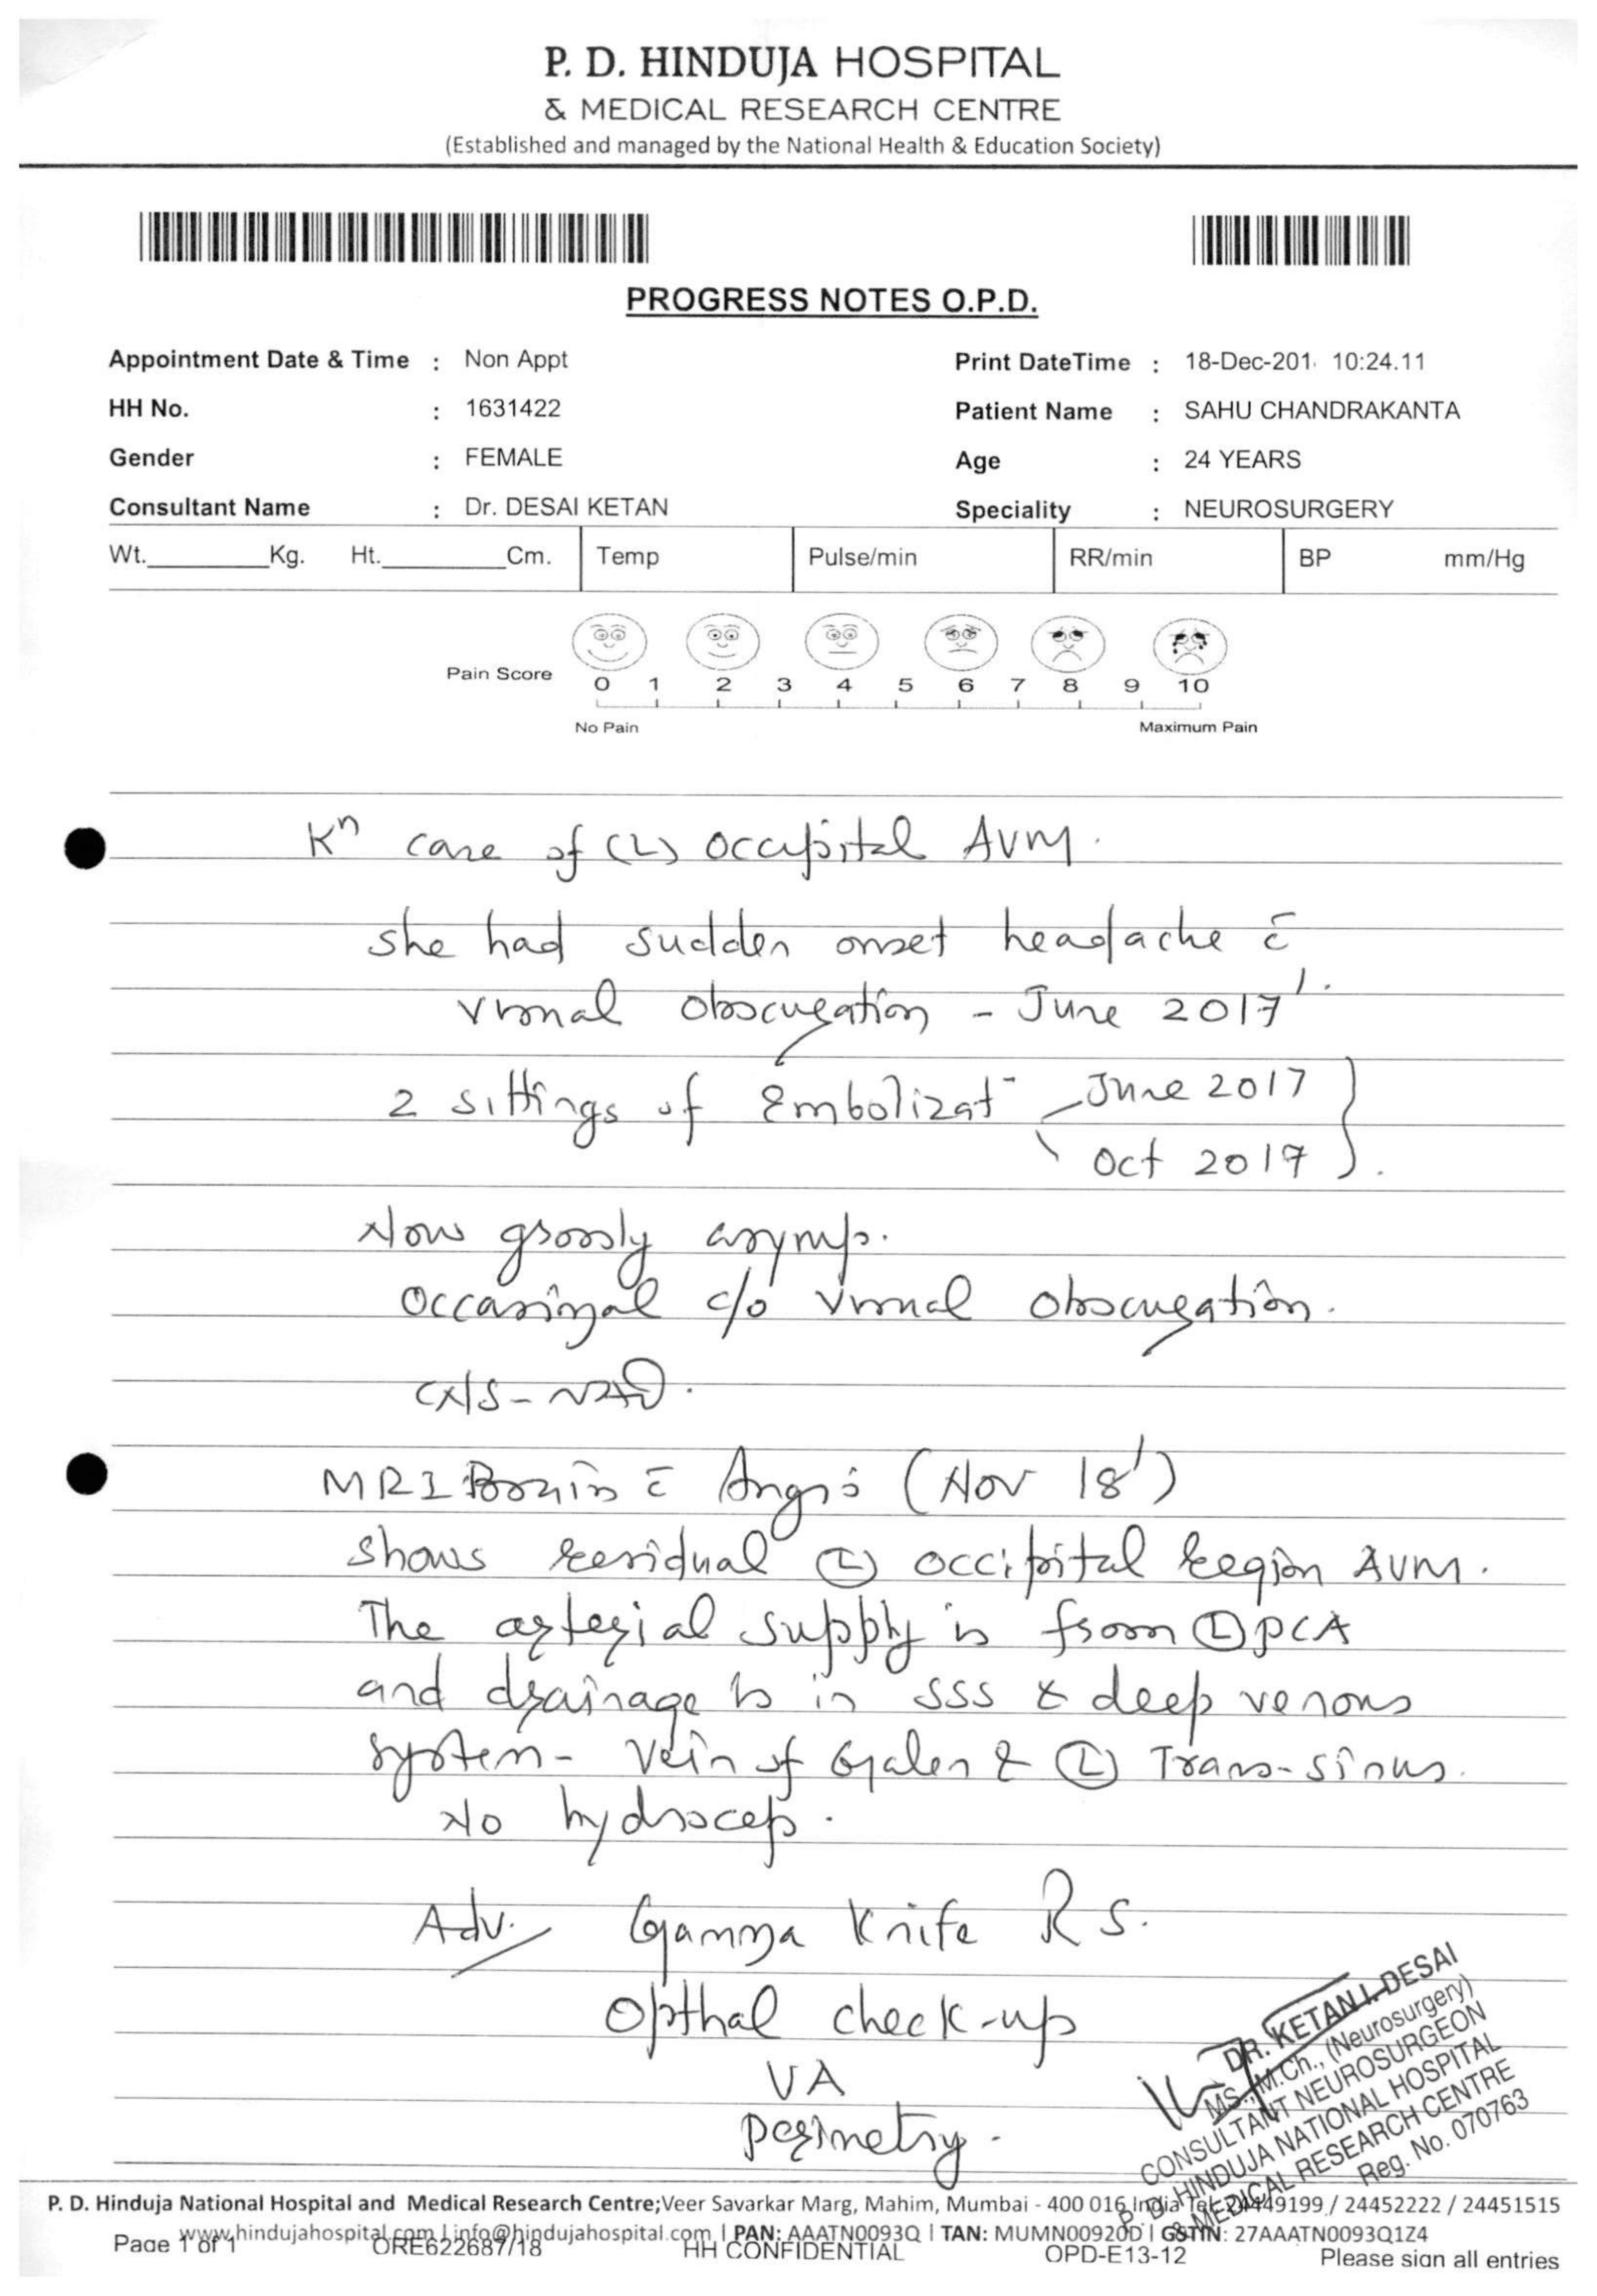 P. D. HINDUJA HOSPITAL
& MEDICAL RESEARCH CENTRE
(Established and managed by the National Health & Education Society)
PROGRESS NOTES O.P.D.
Appointment Date & Time : Non Appt Print DateTime : 18-Dec-201 10:24.11
HH No. : 1631422 Patient Name : SAHU CHANDRAKANTA
Gender : FEMALE Age : 24 YEARS
Consultant Name : Dr. DESAI KETAN Speciality : NEUROSURGERY
Wt.________Kg. Ht.________Cm. Temp Pulse/min RR/min BP mm/Hg
Pain Score 0 1 2 3 4 5 6 7 8 9 10
No Pain Maximum Pain
Kⁿ case of (L) occipital AVM.
she had sudden onset headache c̄
visual obscuration - June 2017'.
2 sittings of Embolizat⁻ June 2017
Oct 2017
Now grossly asymp.
Occasional c/o visual obscuration.
CNS - NAD.
MRI Brain c̄ Angio (Nov 18')
shows residual (L) occipital region AVM.
The arterial supply is from (L) PCA
and drainage is in SSS & deep venous
system - Vein of Galen & (L) Trans-sinus.
No hydrocep.
Adv. Gamma Knife RS.
Opthal check-up
VA
perimetry.
DR. KETAN I. DESAI
MS., M.Ch., (Neurosurgery)
CONSULTANT NEUROSURGEON
P. D. HINDUJA NATIONAL HOSPITAL
& MEDICAL RESEARCH CENTRE
Reg. No. 070763
P. D. Hinduja National Hospital and Medical Research Centre;Veer Savarkar Marg, Mahim, Mumbai - 400 016 India Tel: 24449199 / 24452222 / 24451515
www.hindujahospital.com | info@hindujahospital.com | PAN: AAATN0093Q | TAN: MUMN00920D | GSTIN: 27AAATN0093Q1Z4
Page 1 of 1 ORE622687/18 HH CONFIDENTIAL OPD-E13-12 Please sign all entries